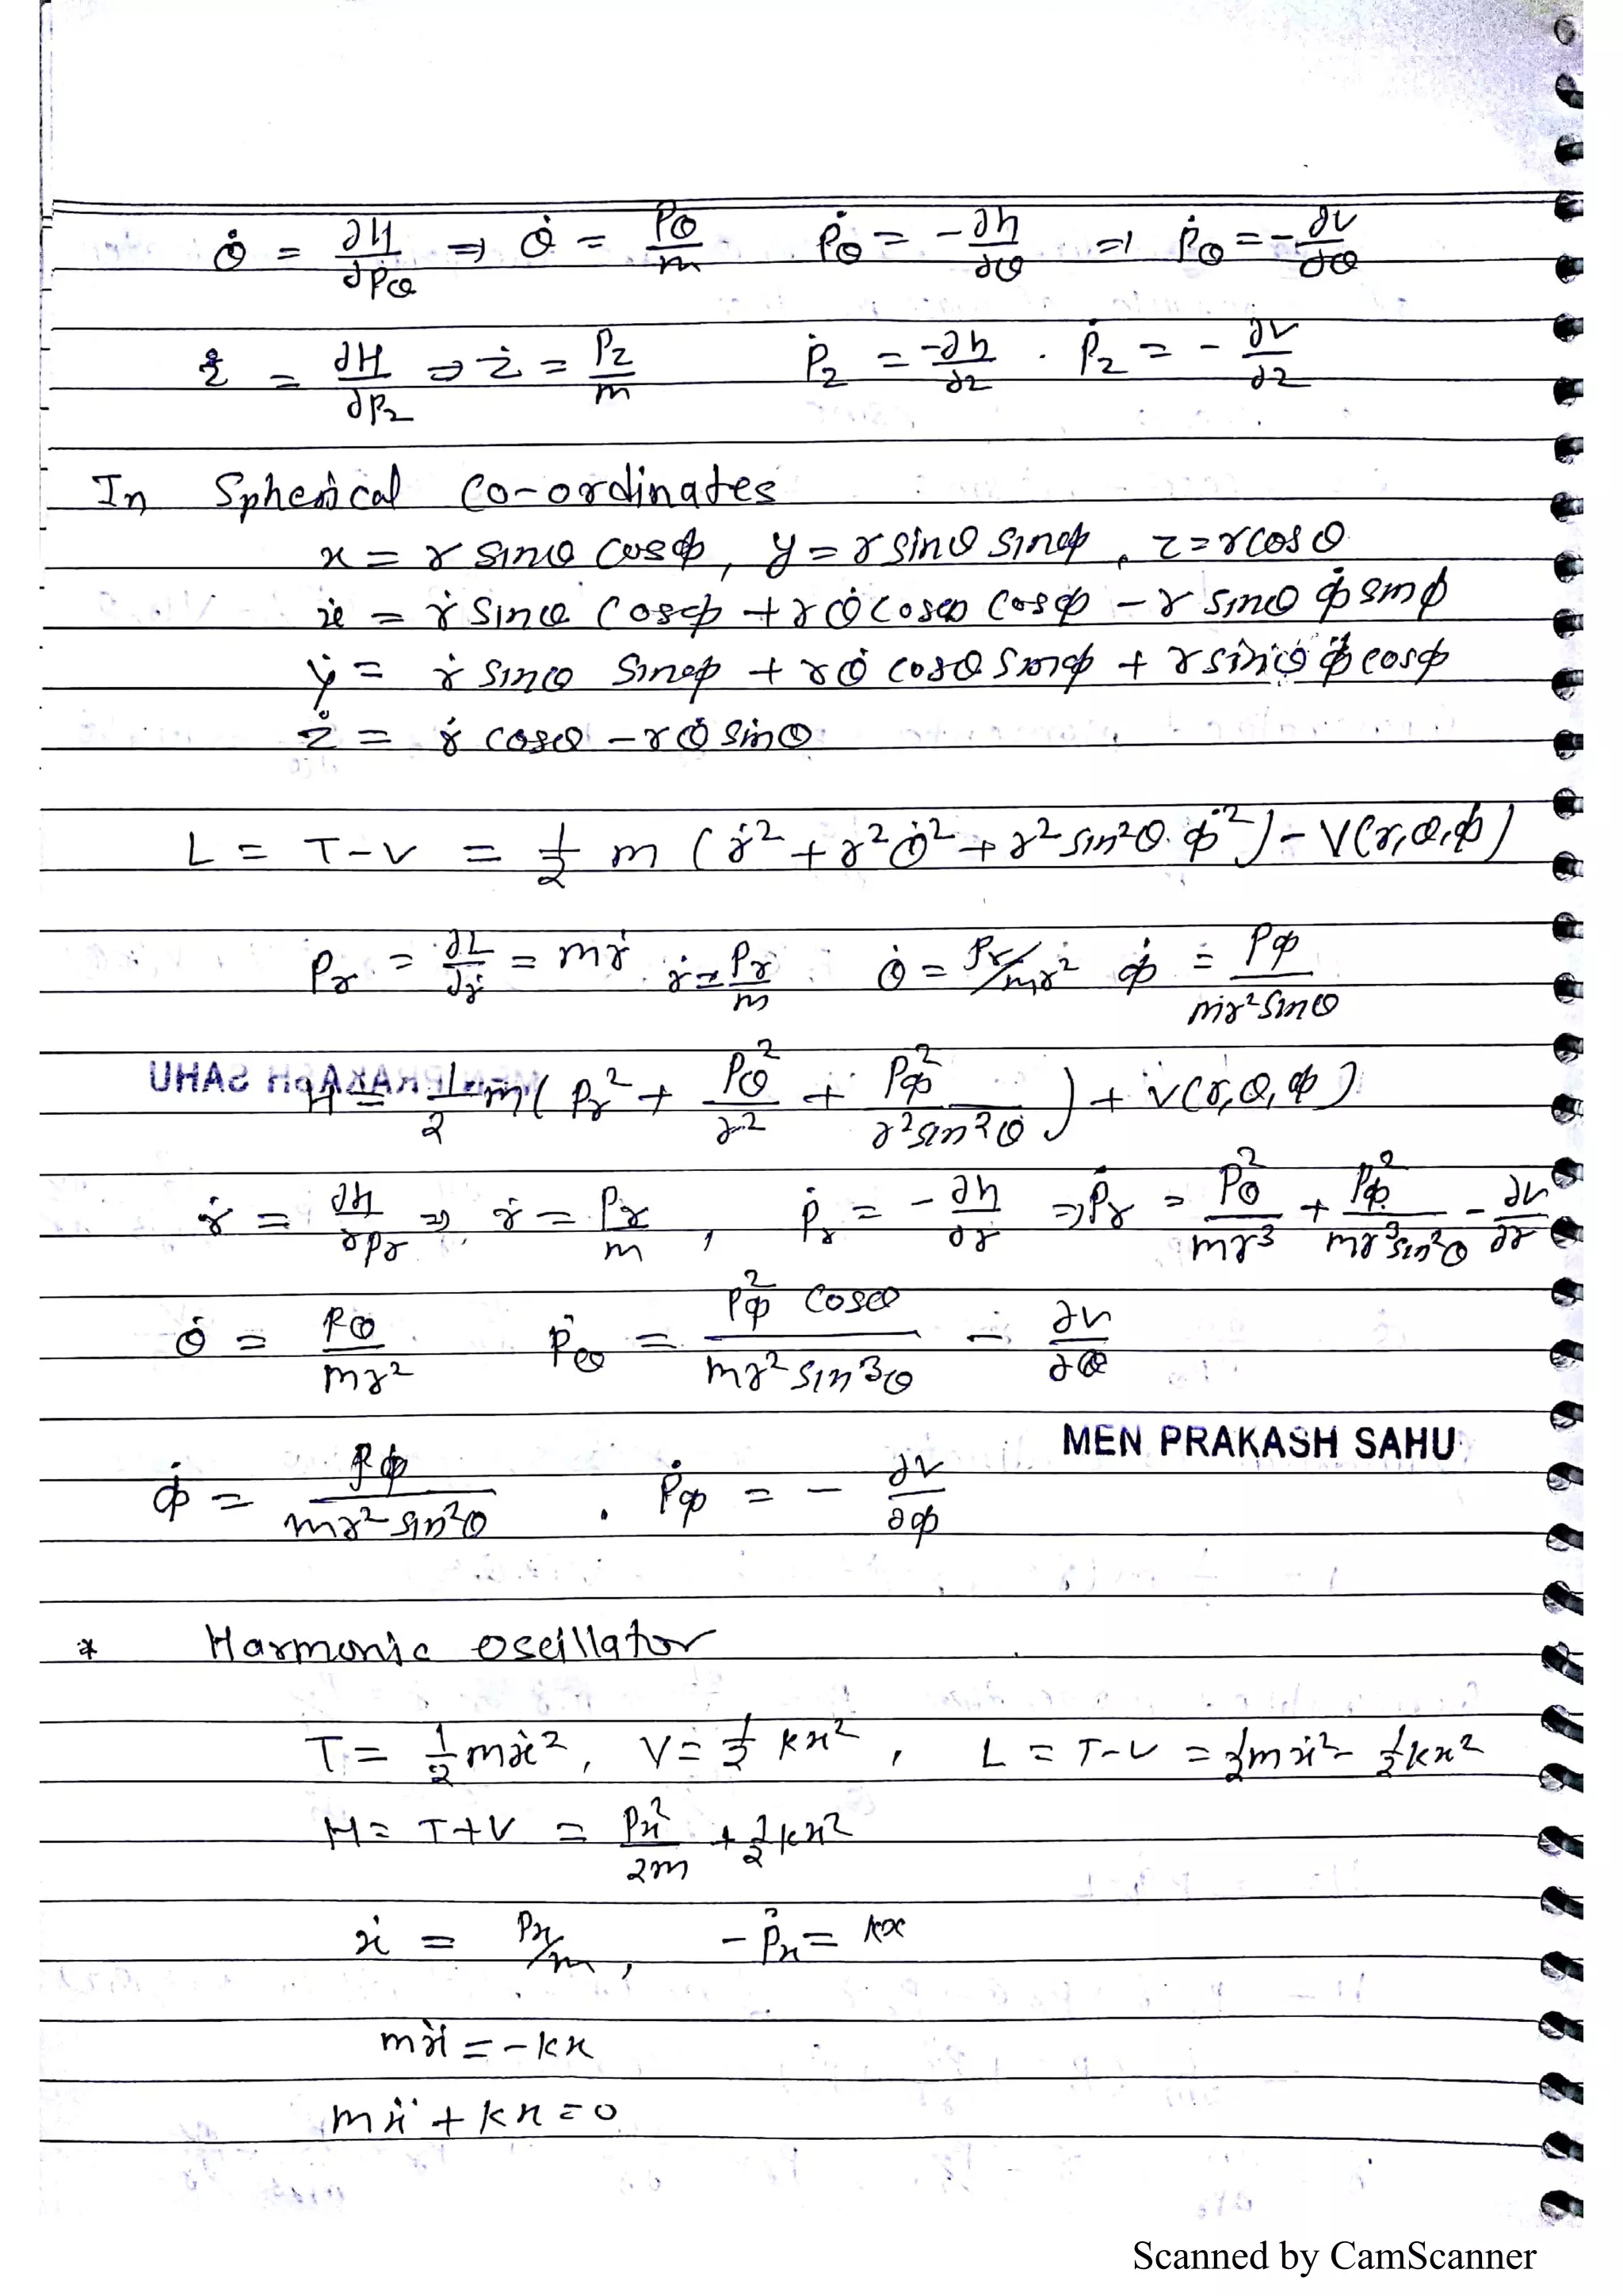 θ̇ = ∂H/∂pθ ⇒ θ̇ = Pθ/m   Ṗθ = -∂h/∂θ ⇒ Ṗθ = -∂v/∂θ
ż = ∂H/∂Pz ⇒ ż = Pz/m   Ṗz = -∂h/∂z . Ṗz = - ∂v/∂z
In Spherical Co-ordinates
x = r sinθ cosφ, y = r sinθ sinφ, z = r cosθ
ẋ = ṙ sinθ cosφ + r θ̇ cosθ cosφ - r sinθ φ̇ sinφ
ẏ = ṙ sinθ sinφ + r θ̇ cosθ sinφ + r sinθ φ̇ cosφ
ż = ṙ cosθ - r θ̇ sinθ
L = T-V = 1/2 m (ṙ² + r² θ̇² + r² sin²θ. φ̇²) - V(r,θ,φ)
Pr = ∂L/∂ṙ = mṙ   ṙ = Pr/m   θ̇ = Pr/mr²   φ̇ = Pφ/mr² sinθ
H = 1/2 m ( Pr² + Pθ²/r² + Pφ²/r² sin²θ ) + V(r,θ,φ)
ṙ = ∂h/∂pr ⇒ ṙ = Pr/m , Ṗr = -∂h/∂r ⇒ Ṗr = Pθ²/mr³ + Pφ²/mr³ sin²θ - ∂v/∂r
θ̇ = Pθ/mr²   Ṗθ = Pφ² cosθ/mr² sin³θ - ∂v/∂θ
MEN PRAKASH SAHU
φ̇ = Pφ/mr² sin²θ . Ṗφ = - ∂v/∂φ
* Harmonic oscillator
T = 1/2 mẋ², V = 1/2 kx², L = T-V = 1/2 mẋ² - 1/2 kx²
H = T+V = Px²/2m + 1/2 kx²
ẋ = Px/m, -Ṗx = kx
mẍ = -kx
mẍ + kx = 0
Scanned by CamScanner